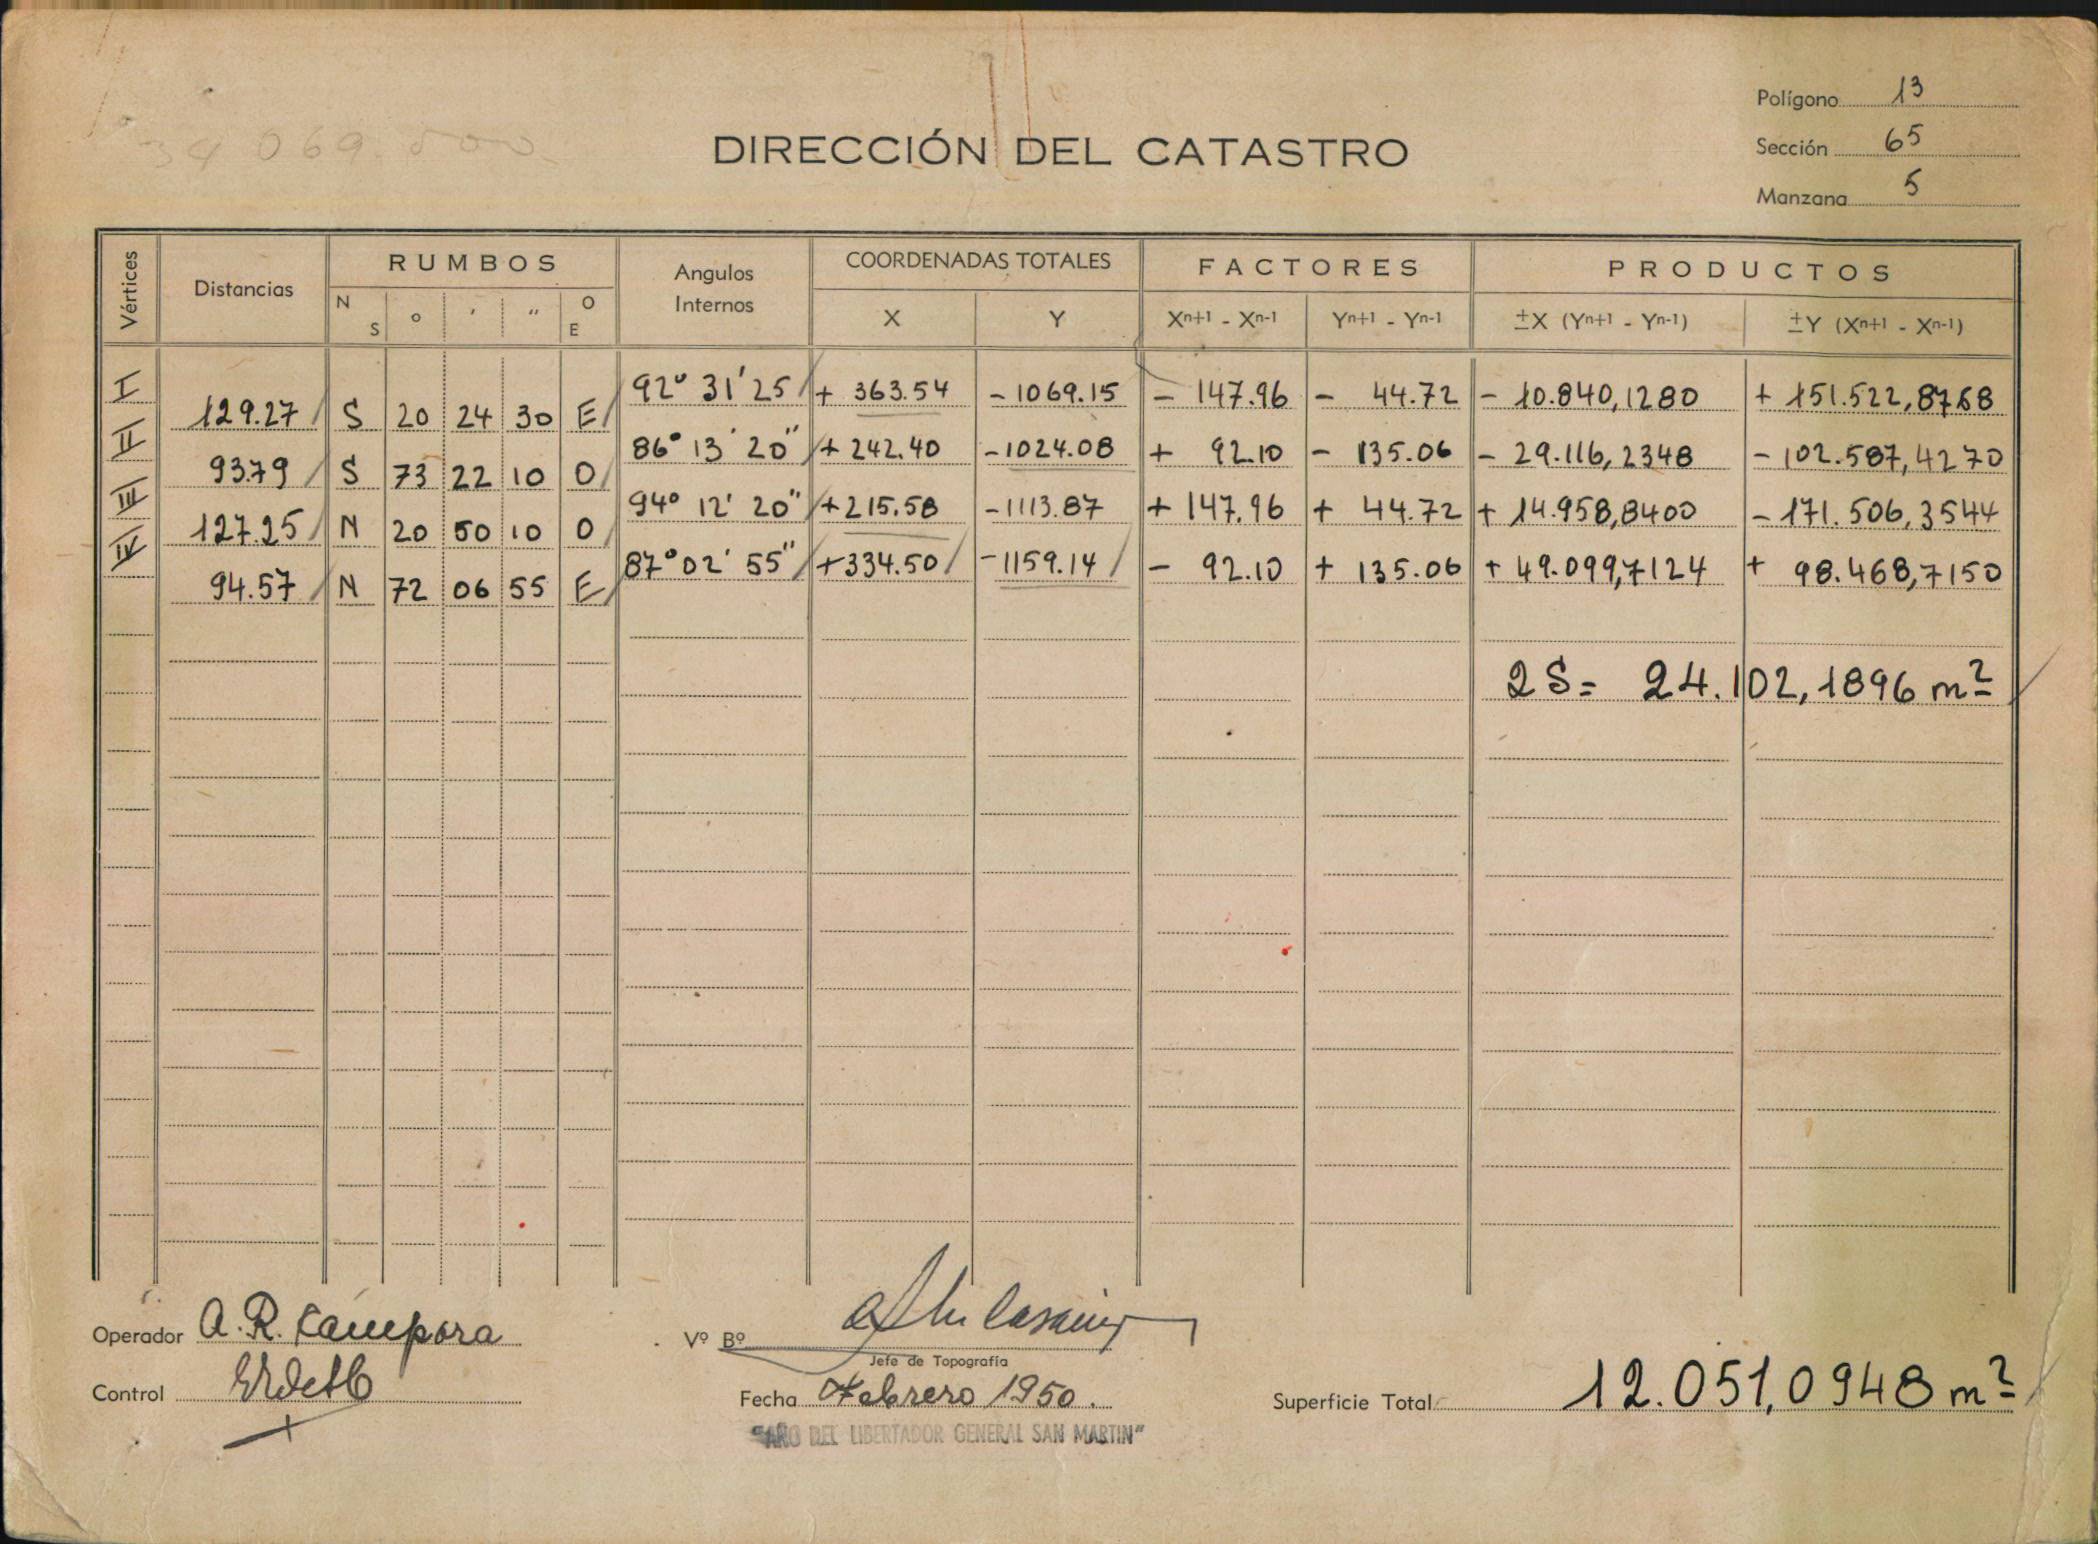 Polígono 13
Sección 65
Manzana 5
DIRECCIÓN DEL CATASTRO
Vértices Distancias RUMBOS Angulos Internos COORDENADAS TOTALES FACTORES PRODUCTOS
N S ° ' " O E X Y Xn+1 - Xn-1 Yn+1 - Yn-1 ±X (Yn+1 - Yn-1) ±Y (Xn+1 - Xn-1)
I 92° 31' 25 + 363.54 - 1069.15 - 147.96 - 44.72 - 10.840,1280 + 151.522,8768
129.27 S 20 24 30 E
II 86° 13' 20" + 242.40 - 1024.08 + 92.10 - 135.06 - 29.116,2348 - 102.587,4270
93.79 S 73 22 10 O
III 94° 12' 20" + 215.58 - 1113.87 + 147.96 + 44.72 + 14.958,8400 - 171.506,3544
127.25 N 20 50 10 O
IV 87° 02' 55" + 334.50 - 1159.14 - 92.10 + 135.06 + 49.099,7124 + 98.468,7150
94.57 N 72 06 55 E
2S = 24.102,1896 m²
Operador A. R. Campora
Vº Bº
Jefe de Topografía
Control
Fecha Febrero 1950.
Superficie Total 12.051,0948 m²
"AÑO DEL LIBERTADOR GENERAL SAN MARTIN"